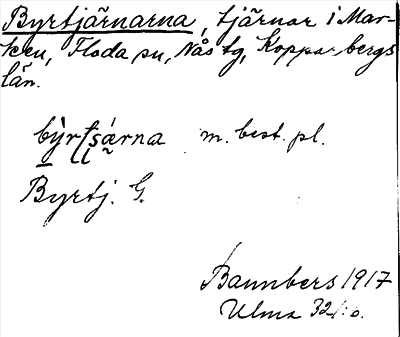 Byrtjärnarna, tjärnar i Mar-
ken, Floda sn, Nås tg, Kopparbergs
län.
m. best. pl.
Byrtj. G.
Bannbers 1917
Ulma 32